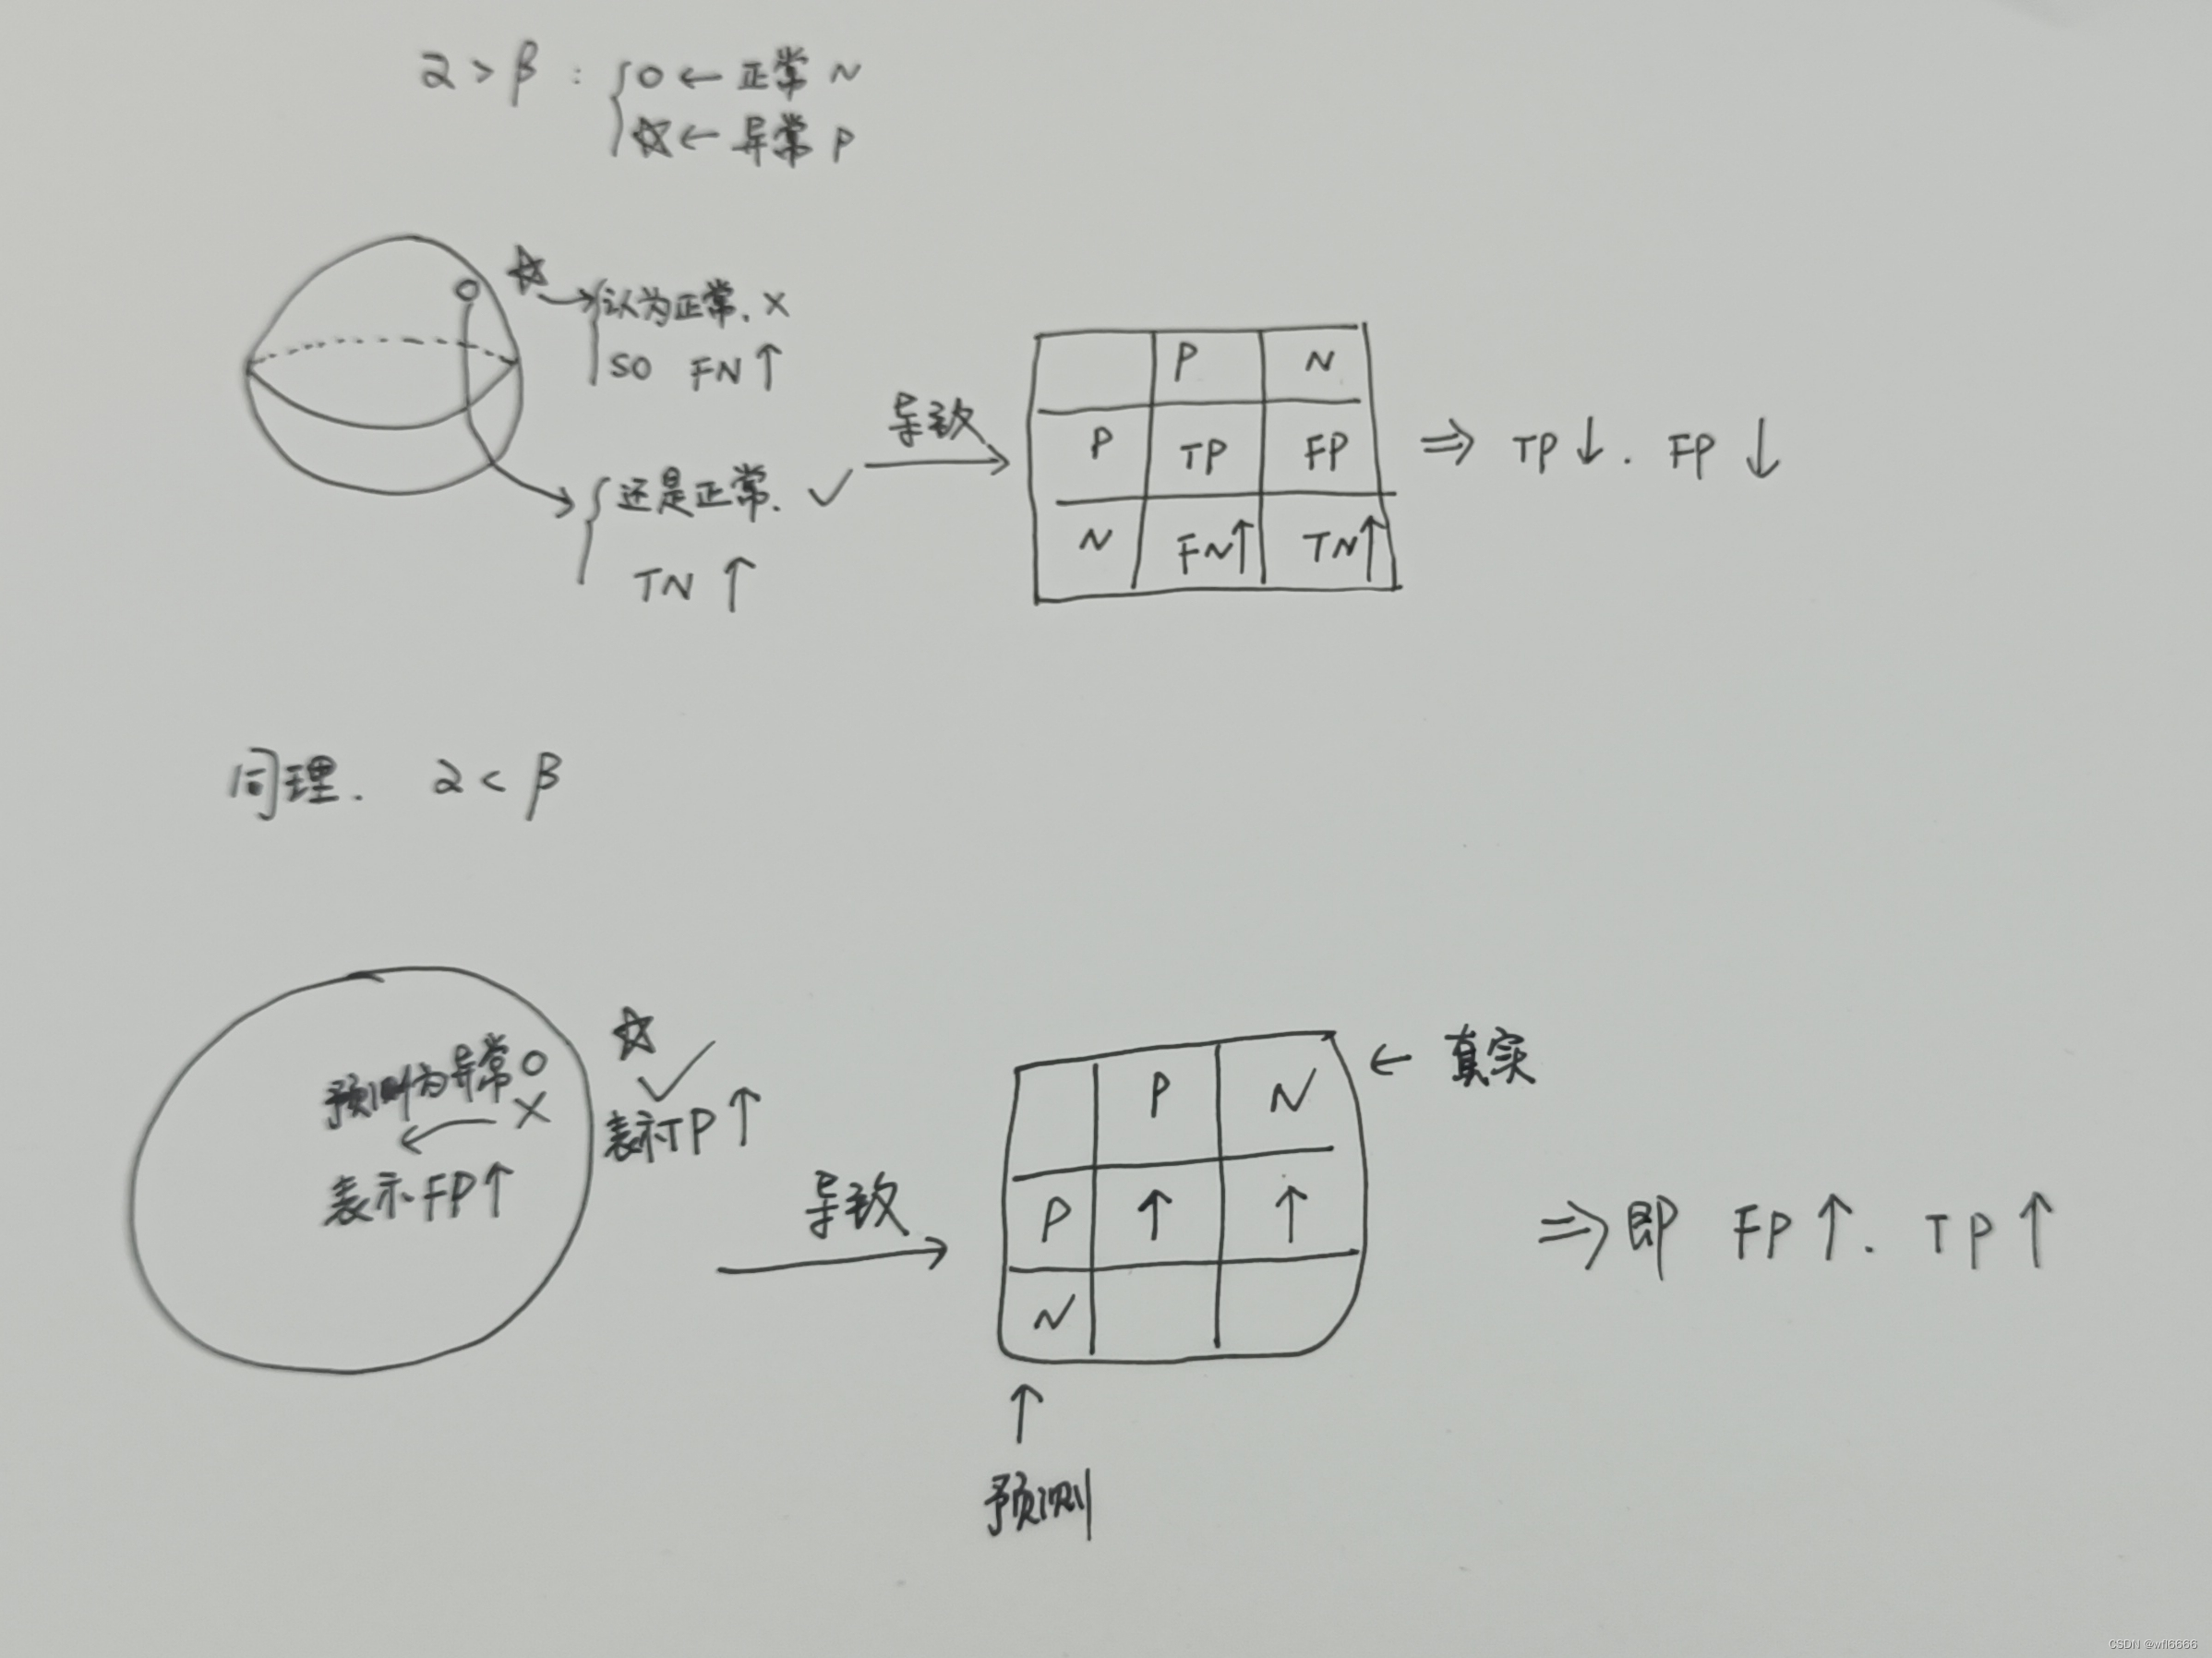 α > β : { O ← 正常 N
☆ ← 异常 P
☆ → { 认为正常. ×
so FN ↑
{ 还是正常. ✓
TN ↑
导致
P N
P TP FP
N FN↑ TN↑
⇒ TP↓. FP↓
同理. α < β
预测为异常 O
×
表示FP↑
☆
✓
表示TP↑
导致
P N ← 真实
P ↑ ↑
N
↑
预测
⇒ 即 FP↑. TP↑
CSDN @wfl6666